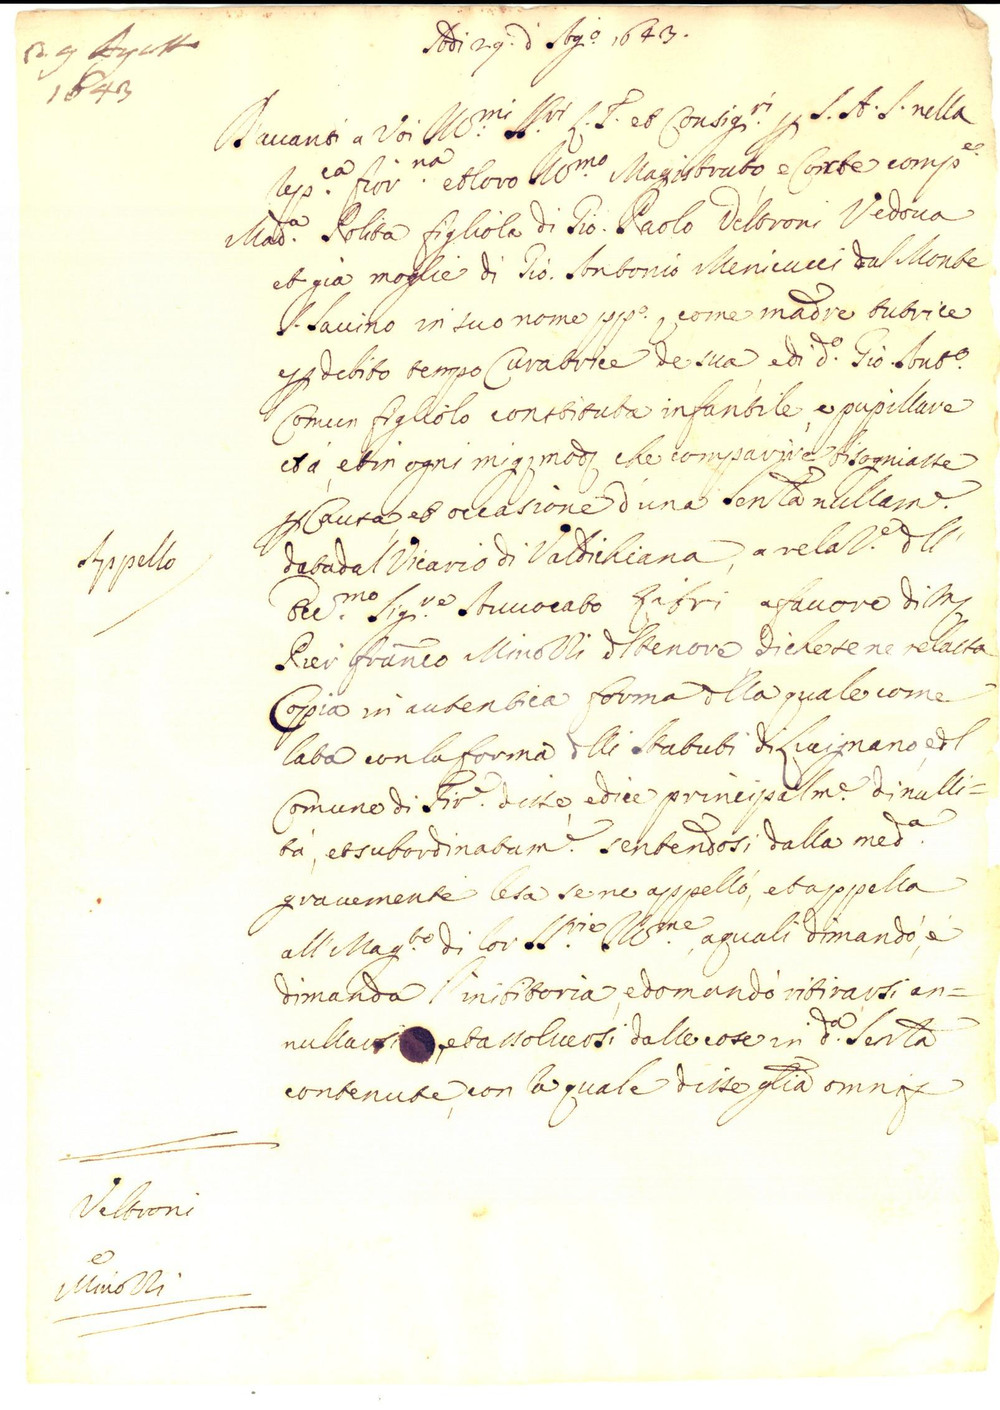 Adi 29. d Ago. 1643.
Agosto
1643
Davanti a Voi Ill.mi SS.ri L. T. et Consig.ri p S. A. S. nella
Rep.ca fior.na et loro Ill.mo Magistrato e Corte comp.e
Mad.a Polita figliola di Gio. Paolo Veltroni Vedova
et già moglie di Gio. Antonio Menicucci dal Monte
S. Savino in suo nome pp.o e come madre tutrice
et p debito tempo Curatrice de suo e di d.o Gio. Ant.o
Comun figliolo constituta infantile, e pupillare
età, et in ogni mig. modo che comparire bisogniasse
p Causa et occasione d'una Senta nullam.e
data dal Vicario di Valdichiana, a rela V.e dll'
Ecc.mo Sig.re Avvocato Libri a favore di
Pier franco Minotti dl tenore, di che se ne relassa
Copia in autentica forma dlla quale come
lata con la forma dlli Statuti di Lucignano, e dl
Comune di Fir.e disse, e dice principalm.e di nulli=
tà, et subordinatam.e sentendosi dalla med.a
gravemente lesa se ne appellò, et appella
all' Mag.to di lor SS.rie Ill.me, a quali dimandò, e
dimanda l'inibitoria, e domandò ritirarsi an=
nullarsi, et assolversi dalle cose in d.a Senta
contenute, con la quale disse glia omni
Appello
Veltroni
e
Minotti